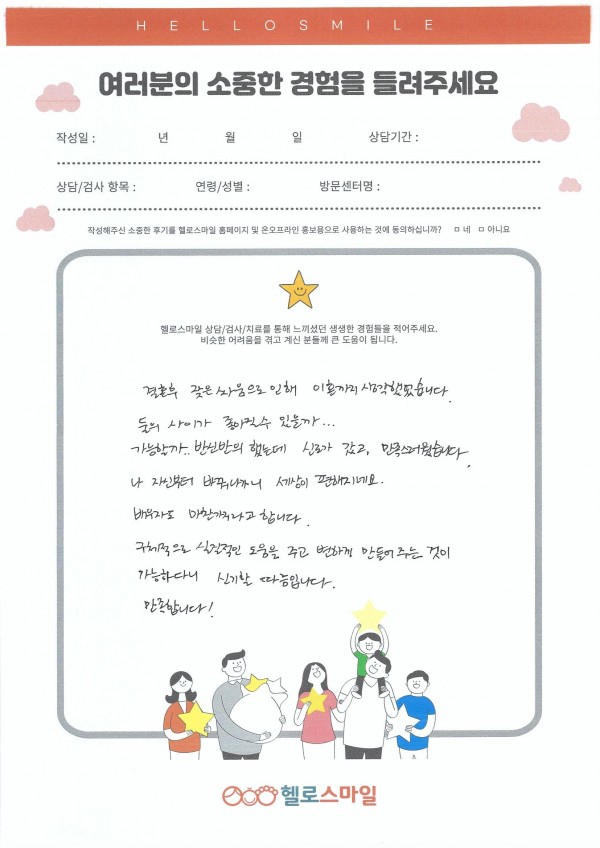 HELLOSMILE
여러분의 소중한 경험을 들려주세요
작성일 : 년 월 일 상담기간 :
상담/검사 항목 : 연령/성별 : 방문센터명 :
작성해주신 소중한 후기를 헬로스마일 홈페이지 및 온오프라인 홍보용으로 사용하는 것에 동의하십니까? ㅁ 네 ㅁ 아니요
헬로스마일 상담/검사/치료를 통해 느끼셨던 생생한 경험들을 적어주세요.
비슷한 어려움을 겪고 계신 분들께 큰 도움이 됩니다.
결혼후 잦은 싸움으로 인해 이혼까지 생각했었습니다.
둘의 사이가 좋아질수 있을까...
가능할까.. 반신반의 했는데 신뢰가 갔고, 만족스러웠습니다.
나 자신부터 바뀌나까니 세상이 편해지네요.
배우자도 마찬가지라고 합니다.
구체적으로 실질적인 도움을 주고 변하게 만들어 주는 것이
가능하다니 신기할 따름입니다.
만족합니다!
헬로스마일